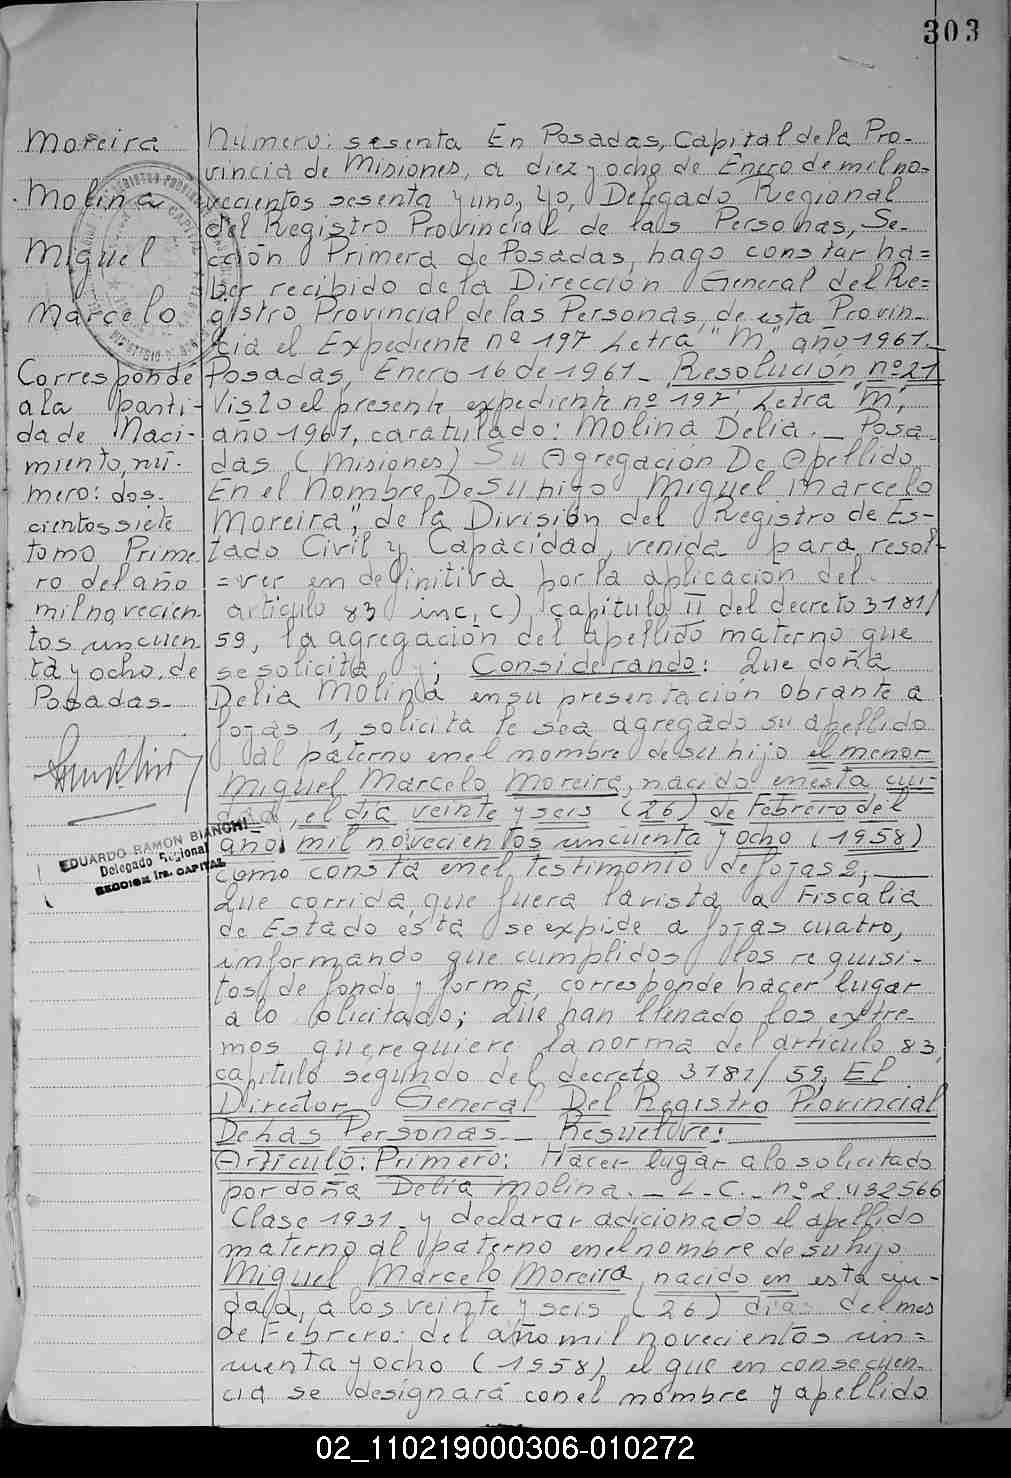 303
Moreira
Molina
Miguel
Marcelo
Corresponde
a la parti-
da de Naci-
miento, nú-
mero: dos-
cientos siete
tomo Prime-
ro del año
mil novecien-
tos uncuen
ta y ocho. de
Posadas.-
EDUARDO RAMON BIANCHI
Delegado Regional
SECCION 1ra. CAPITAL
Número: sesenta En Posadas, Capital de la Pro-
vincia de Misiones, a diez y ocho de Enero de mil no=
vecientos sesenta y uno, Yo, Delegado Regional
del Registro Provincial de las Personas, Se-
cción Primera de Posadas, hago constar ha=
ber recibido de la Dirección General del Re=
gistro Provincial de las Personas, de esta Provin-
cia el Expediente nº 197 Letra "M" año 1961.-
Posadas, Enero 16 de 1961_ Resolución nº 21
Visto el presente expediente nº 197, Letra "M",
año 1961, caratulado: Molina Delia._ Posa-
das (Misiones) Su Agregación De Apellido
En el Nombre De Su higo Miguel Marcelo
Moreira", de la División del Registro de Es-
tado Civil y Capacidad, venida para resol-
=ver en definitiva por la aplicación del
artículo 83 inc, c) capitulo II del decreto 3181/
59, la agregación del apellido materno que
se solicita y; Considerando: Que doña
Delia Molina en su presentación obrante a
fojas 1, solicita le sea agregado su apellido
al paterno en el nombre de su hijo el menor
Miguel Marcelo Moreira, nacido en esta ciu-
dad, el dia veinte y seis (26) de Febrero del
año mil novecientos uncuenta y ocho (1958)
como consta en el testimonio de fojas 2;
Que corrida que fuera la vista a Fiscalia
de Estado esta se expide a fojas cuatro,
informando que cumplidos los requisi-
tos de fondo y forma, corresponde hacer lugar
a lo solicitado; Que han llenado los extre-
mos que requiere la norma del artículo 83,
capitulo segundo del decreto 3181/59, El
Director General Del Registro Provincial
De Las Personas._ Resuelve:
Artículo: Primero: Hacer lugar a lo solicitado
por doña Delia Molina._ L.C._ nº 2.432566
Clase 1931_ y declarar adicionado el apellido
materno al paterno en el nombre de su hijo
Miguel Marcelo Moreira, nacido en esta ciu-
dad, a los veinte y seis (26) dias del mes
de Febrero: del año mil novecientos un=
cuenta y ocho (1958) el que en consecuen-
cia se designará con el nombre y apellido
02_110219000306-010272